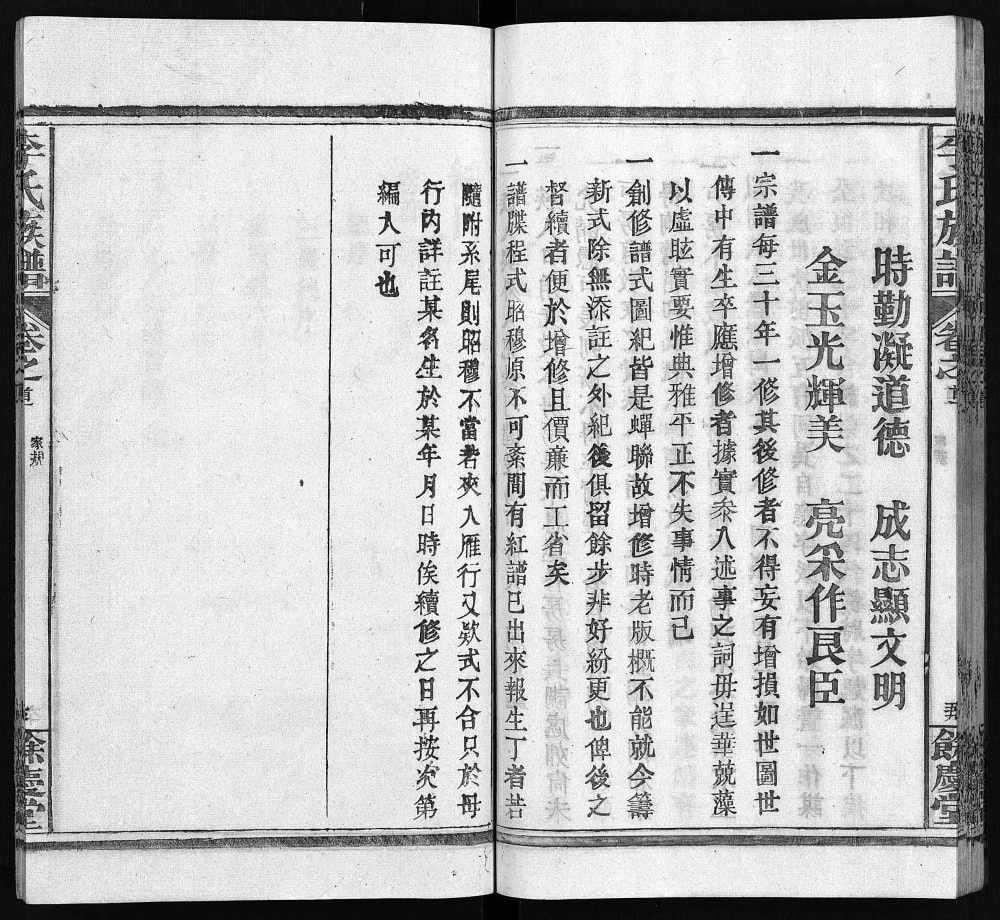 李氏族譜 卷之首
餘慶堂
時勤凝道德 成志顯文明
金玉光輝美 亮采作良臣
一宗譜每三十年一修其後修者不得妄有增損如世圖世
傳中有生卒應增修者據實叅入述事之詞毋逞華競藻
以虛眩實要惟典雅平正不失事情而已
一創修譜式圖紀皆是蟬聯故增修時老版概不能就今籌
新式除無添註之外紀後俱留餘步非好紛更也俾後之
督續者便於增修且價廉而工省矣
一譜牒程式昭穆原不可紊間有紅譜已出來報生丁者若
隨附系尾則昭穆不當若夾入雁行又欵式不合只於母
行內詳註某名生於某年月日時俟續修之日再按次第
編入可也
李氏族譜 卷之首 家規
餘慶堂